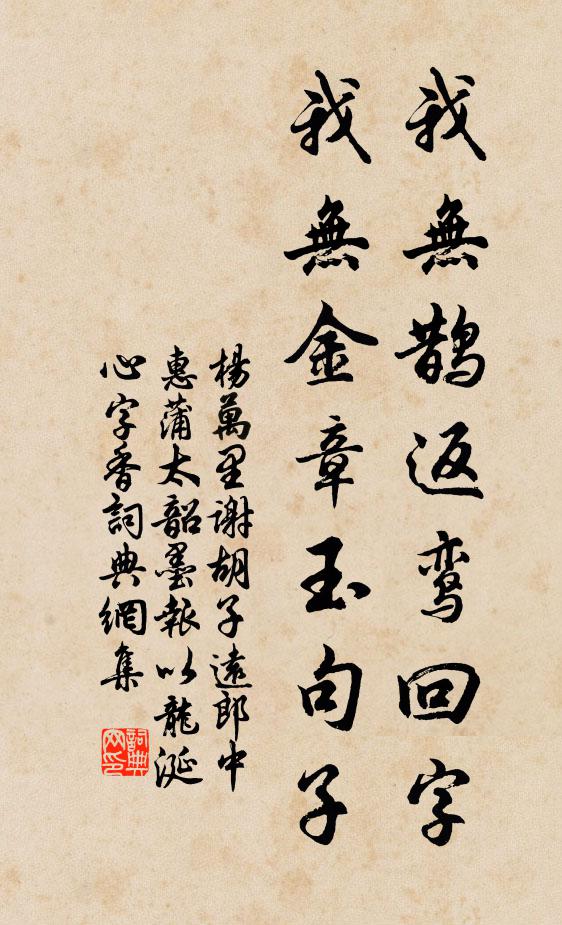 我無鹊返鸾回字
我無金章玉句子
楊萬里谢胡子遠郎中
惠蒲太韶墨報以龍涎
心字香詞典網集
詞典
网印